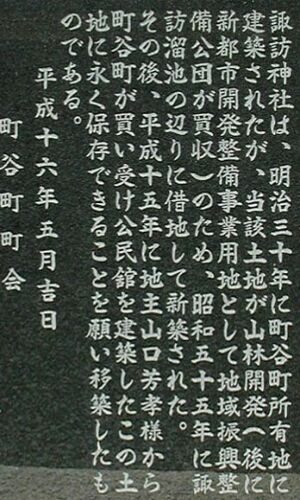 諏訪神社は、明治三十年に町谷町所有地に
建築されたが、当該土地が山林開発(後に
新都市開発整備事業用地として地域振興整
備公団が買収)のため、昭和五十五年に諏
訪溜池の辺りに借地して新築された。
その後、平成十五年に地主山口芳孝様から
町谷町が買い受け公民館を建築したこの土
地に永く保存できることを願い移築したも
のである。
平成十六年五月吉日
町谷町町会